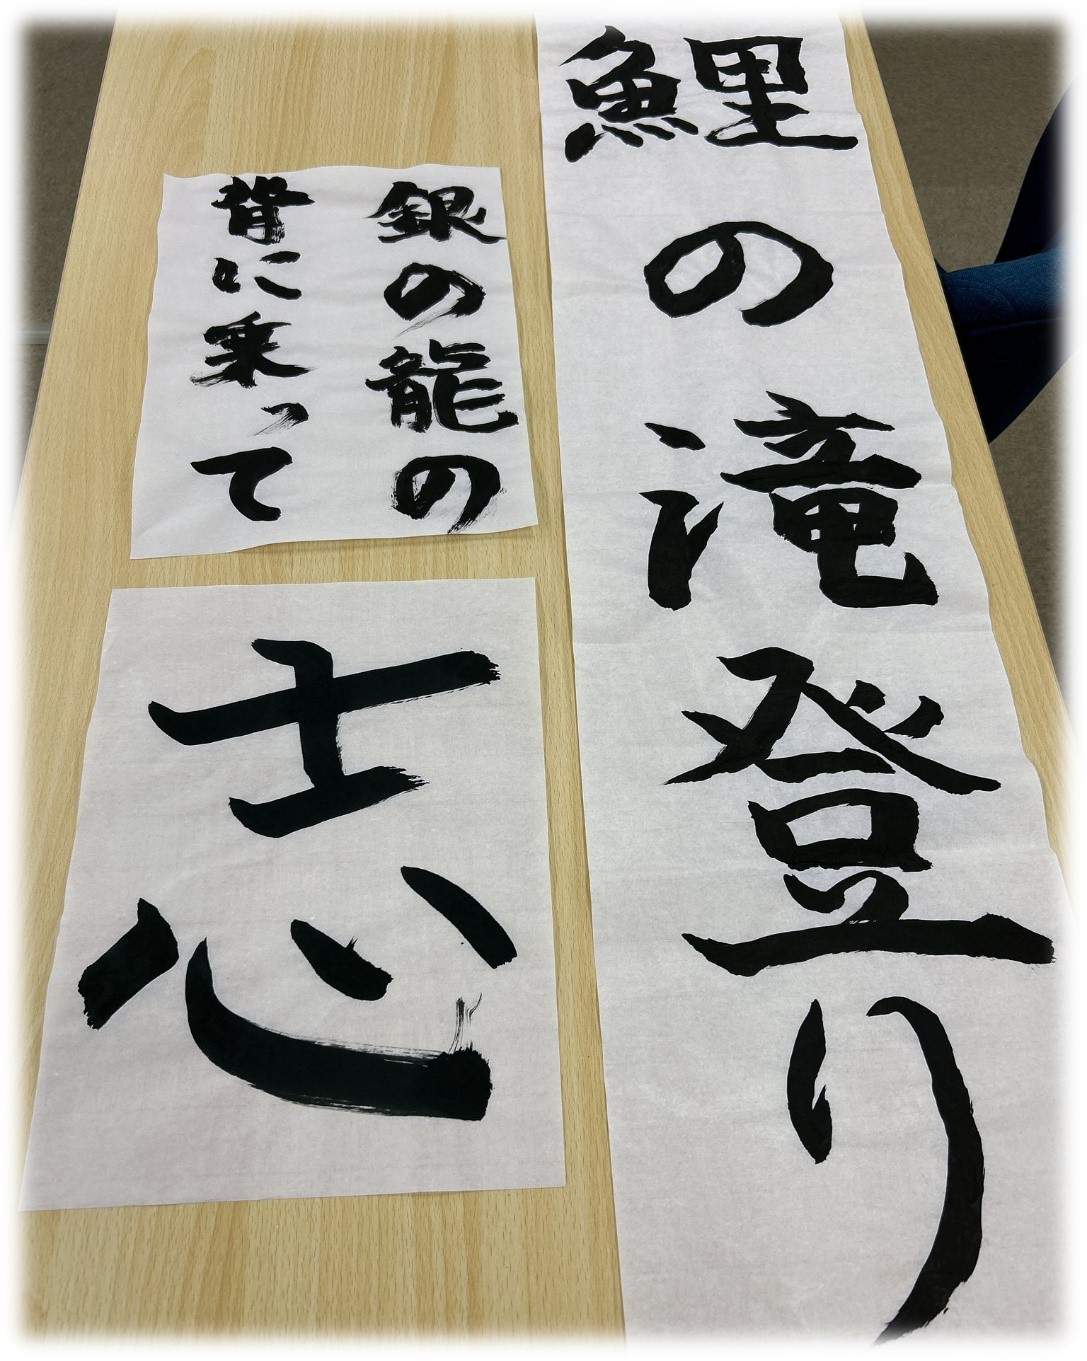 鯉の滝登り
銀の龍の
背に乗って
志